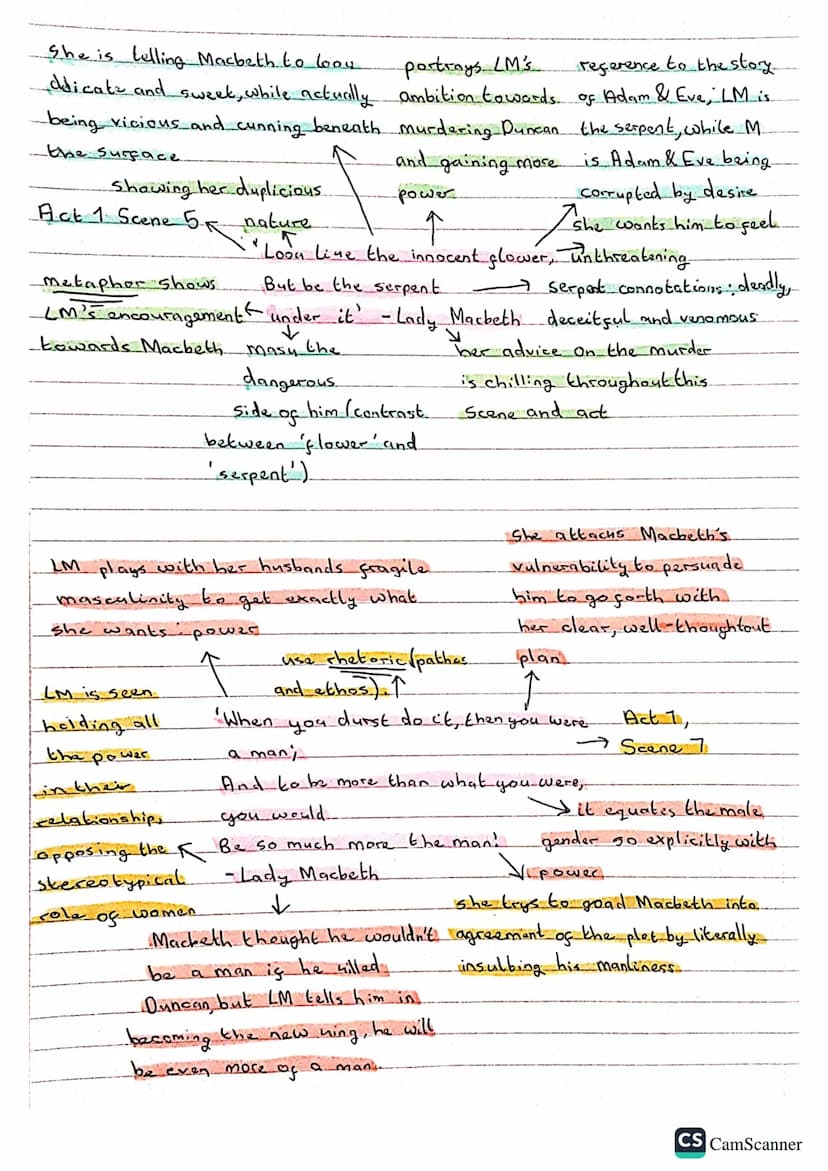 She is telling Macbeth to look
dilicate and sweet, while actually
being vicious and cunning beneath
the surface
portrays LM's
ambition towards
murdering Duncan
and gaining more
power
reference to the story
of Adam & Eve; LM is
the serpent, while M
is Adam & Eve being
corrupted by desire
showing her duplicious
nature
Act 1 Scene 5
she wants him to feel
unthreatening
'Look like the innocent flower,
But be the serpent
under it' - Lady Macbeth
metaphor shows
LM's encouragement
towards Macbeth
serpent connotations: deadly,
deceitful and venomous
mask the
dangerous
side of him (contrast
between 'flower' and
'serpent')
her advice on the murder
is chilling throughout this
scene and act
LM plays with her husbands fragile
masculinity to get exactly what
she wants: power
She attacks Macbeth's
vulnerability to persuade
him to go forth with
her clear, well-thoughtout
plan
use rhetoric (pathos
and ethos).
LM is seen
holding all
the power
in their
relationship,
opposing the
stereotypical
role of women
'When you durst do it, then you were
a man;
And to be more than what you were,
you would
Be so much more the man!
- Lady Macbeth
Act 1,
Scene 7
it equates the male
gender so explicitly with
power
she trys to goad Macbeth into
agreement of the plot by literally
insulting his manliness
Macbeth thought he wouldn't
be a man if he killed
Duncan, but LM tells him in
becoming the new king, he will
be even more of a man.
CS CamScanner